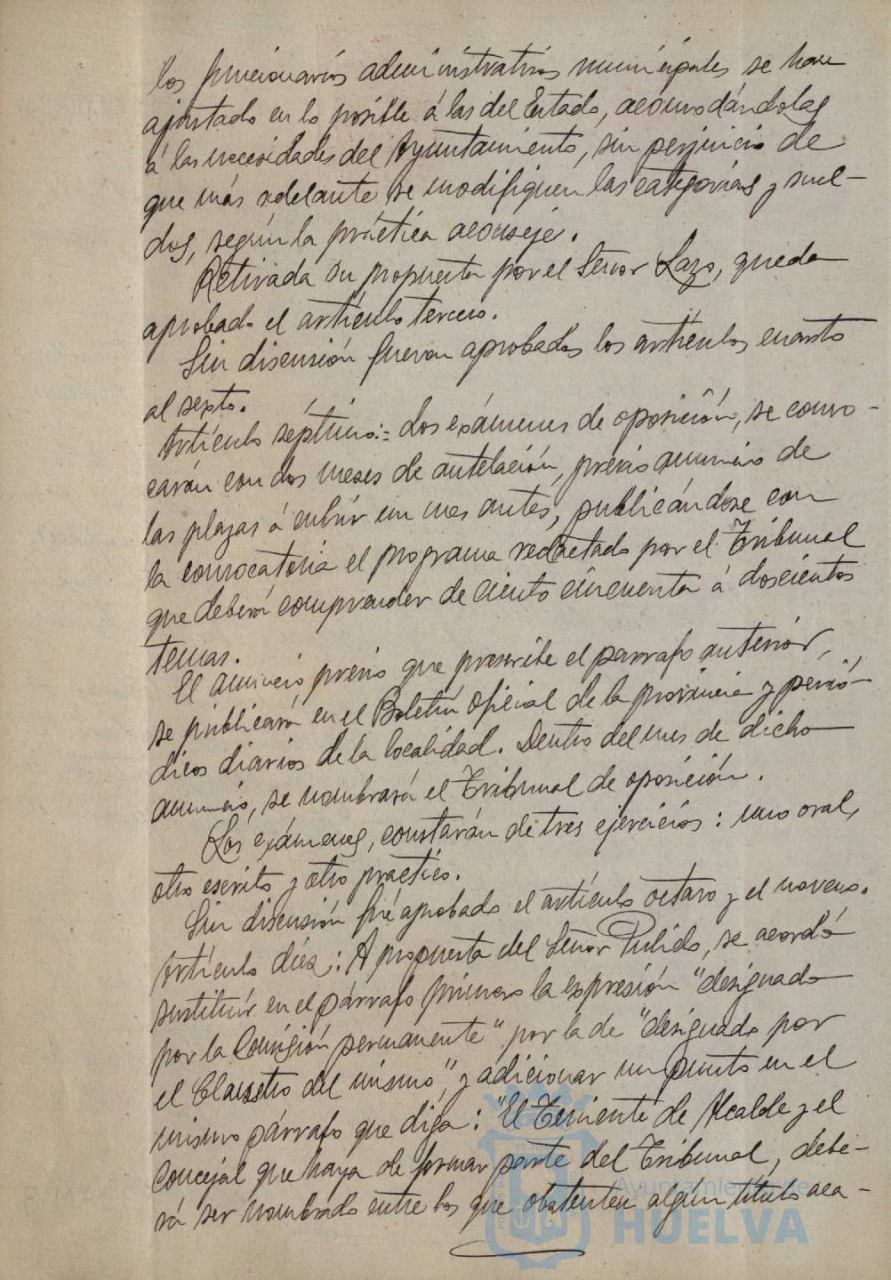 los funcionarios administrativos municipales se han
ajustado en lo posible á las del Estado, acomodándolas
á las necesidades del Ayuntamiento, sin perjuicio de
que más adelante se modifiquen las categorías y suel-
dos, según la práctica aconseje.
Retirada su propuesta por el Señor Lazo, queda
aprobado el artículo tercero.
Sin discusión fueron aprobados los artículos cuarto
al sexto.
Artículo séptimo:= Los exámenes de oposición, se convo-
carán con dos meses de antelación, previo anuncio de
las plazas á cubrir un mes antes, publicándose con
la convocatoria el programa redactado por el Tribunal
que deberá comprender de ciento cincuenta á doscientos
temas.
El anuncio previo que prescribe el párrafo anterior,
se publicará en el Boletín oficial de la provincia y perió-
dicos diarios de la localidad. Dentro del mes de dicho
anuncio, se nombrará el Tribunal de oposición.
Los exámenes, constarán de tres ejercicios: uno oral,
otro escrito y otro practico.
Sin discusión fué aprobado el artículo octavo y el noveno.
Artículo diez: A propuesta del Señor Pulido, se acordó
sustituir en el párrafo primero la expresión "designado
por la Comisión permanente" por la de "designado por
el Claustro del mismo", y adicionar un punto en el
mismo párrafo que diga: "El Teniente de Alcalde y el
Concejal que haya de formar parte del Tribunal, debe-
rá ser nombrado entre los que obstenten algún título aca-
Ayuntamiento de
HUELVA